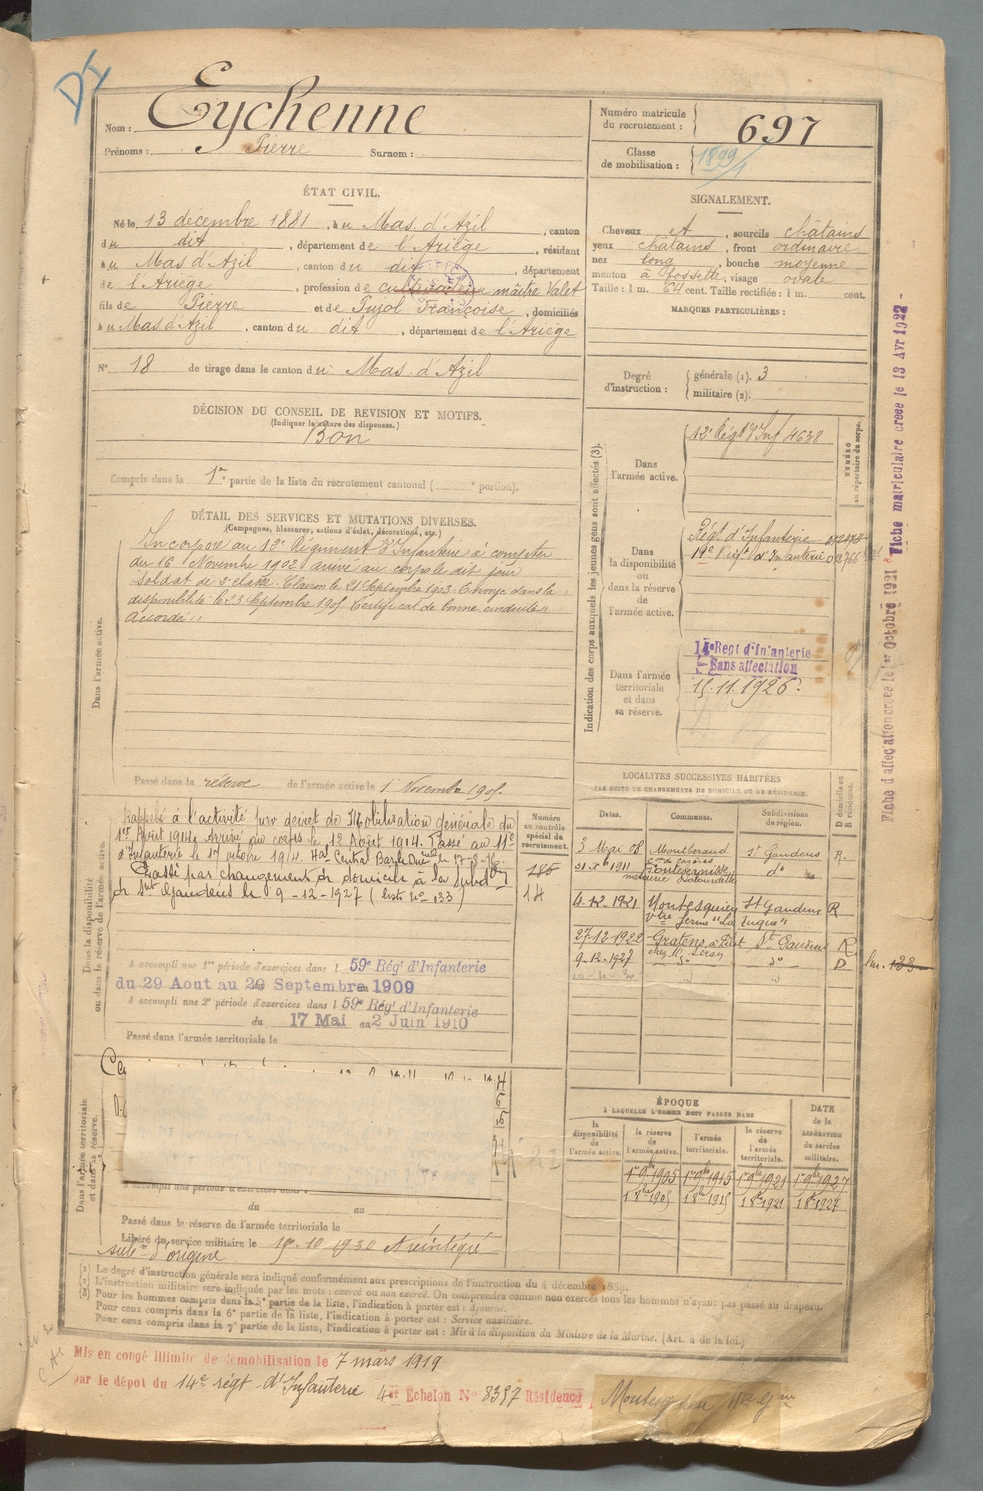 DI
Nom : Eychenne
Prénoms : Pierre Surnom :
Numéro matricule
du recrutement : 697
Classe
de mobilisation : 1899
ÉTAT CIVIL.
Né le 13 décembre 1881, à u Mas d'Azil, canton
du dit, département de l'Ariège, résidant
à u Mas d'Azil, canton du dit, département
de l'Ariège, profession de cultivateur maître Valet
fils de Pierre et de Pujol Françoise, domiciliés
à u Mas d'Azil, canton du dit, département de l'Ariège
N° 18 de tirage dans le canton du Mas d'Azil
SIGNALEMENT.
Cheveux et, sourcils châtains
yeux châtains, front ordinaire
nez long, bouche moyenne
menton à fossette, visage ovale
Taille : 1 m. 64 cent. Taille rectifiée : 1 m. cent.
MARQUES PARTICULIÈRES :
Degré
d'instruction :
générale (1). 3
militaire (2).
DÉCISION DU CONSEIL DE REVISION ET MOTIFS.
(Indiquer la nature des dispenses.)
Bon
Compris dans la 1re partie de la liste du recrutement cantonal ( portion).
DÉTAIL DES SERVICES ET MUTATIONS DIVERSES.
(Campagnes, blessures, actions d'éclat, décorations, etc.)
Dans l'armée active.
Incorporé au 12e Régiment d'Infanterie à compter
du 16 Novembre 1902 arrivé au corps le dit jour
Soldat de 2e classe. Clairon le 21 Septembre 1903. Envoyé dans la
disponibilité le 23 Septembre 1905. Certificat de bonne conduite
Accordé
Passé dans la réserve de l'armée active le 1 Novembre 1905.
Indication des corps auxquels les jeunes gens sont affectés (3).
NUMÉRO
au répertoire du corps.
Dans
l'armée active.
12e Régt d'Inf 4638
Dans
la disponibilité
ou
dans la réserve
de
l'armée active.
Rég. d'Infanterie
d'Infanterie
Dans l'armée
territoriale
et dans
sa réserve.
14e Regt d'Infanterie
Sans affectation
15.11.1926.
Fiche d'affectation creee le 1er Octobre 1921 Fiche matriculaire creee le 13 Avr 1922
Dans la disponibilité
ou dans la réserve de l'armée active.
Rappelé à l'activité par décret de Mobilisation générale du
1er Août 1914. Arrivé au corps le 12 Août 1914. Passé au 11e
d'Infanterie le 17 octobre 1914.
Passé par changement de domicile à la Subdon
de St Gaudens le 9-12-1927 (liste n° 133)
Numéro
au contrôle
spécial du
recrutement.
185
14
A accompli une 1re période d'exercices dans l 59e Régt d'Infanterie
du 29 Aout au 20 Septembre 1909
A accompli une 2e période d'exercices dans l 59e Régt d'Infanterie
du 17 Mai au 2 Juin 1910
Passé dans l'armée territoriale le
LOCALITÉS SUCCESSIVES HABITÉES
PAR SUITE DE CHANGEMENTS DE DOMICILE OU DE RÉSIDENCE.
Dates. Communes. Subdivisions
de région.
D domicile ou
R résidence.
3 Mai 08 Montberaud St Gaudens R.
1911 do
4-12-1921 Montesquieu St Gaudens R
27-12-1922 Gratens St Gaudens R
9-12-1927 do do D
133
Dans l'armée territoriale
et dans sa réserve.
A accompli une période d'exercices dans
du au
Passé dans la réserve de l'armée territoriale le
Libéré du service militaire le 15-10-1930 et réintégré
subon d'origine
ÉPOQUE
À LAQUELLE L'HOMME DOIT PASSER DANS
DATE
de la
LIBÉRATION
du service
militaire.
la
disponibilité
de
l'armée active.
la réserve
de
l'armée active.
l'armée
territoriale.
la réserve
de
l'armée
territoriale.
1er 9bre 1905 1er 9bre 1915 1er 9bre 1921 1er 9bre 1927
1 8bre 1905 1 8bre 1915 1 8bre 1921 1 8bre 1927
(1) Le degré d'instruction générale sera indiqué conformément aux prescriptions de l'instruction du 4 décembre 1889.
(2) L'instruction militaire sera indiquée par les mots : exercé ou non exercé. On comprendra comme non exercés tous les hommes n'ayant pas passé au drapeau.
(3) Pour les hommes compris dans la 5e partie de la liste, l'indication à porter est : Ajourné.
Pour ceux compris dans la 6e partie de la liste, l'indication à porter est : Service auxiliaire.
Pour ceux compris dans la 7e partie de la liste, l'indication à porter est : Mis à la disposition du Ministre de la Marine. (Art. 4 de la loi.)
Mis en congé illimité de démobilisation le 7 mars 1919
par le dépot du 14e régt d'Infanterie 4e Echelon N° 8357 Résidence